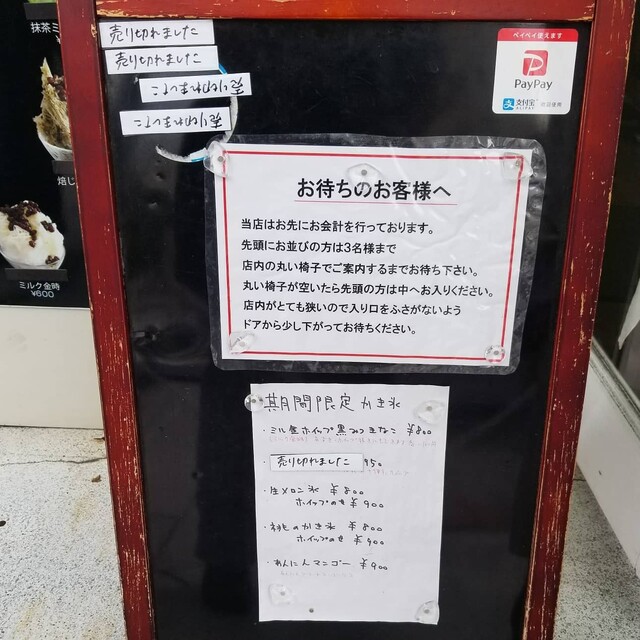 抹茶ミ
売り切れました
売り切れました
売り切れました
売り切れました
ペイペイ使えます
PayPay
支付宝
ALIPAY
焙じ
ミルク金時
¥600
お待ちのお客様へ
当店はお先にお会計を行っております。
先頭にお並びの方は3名様まで
店内の丸い椅子でご案内するまでお待ち下さい。
丸い椅子が空いたら先頭の方は中へお入りください。
店内がとても狭いので入り口をふさがないよう
ドアから少し下がってお待ちください。
期間限定 かき氷
・ミルク金ホイップ黒みつきなこ ¥800
売り切れました 950
・生メロン氷 ¥800
ホイップのせ ¥900
・桃のかき氷 ¥800
ホイップのせ ¥900
・あんにんマンゴー ¥900